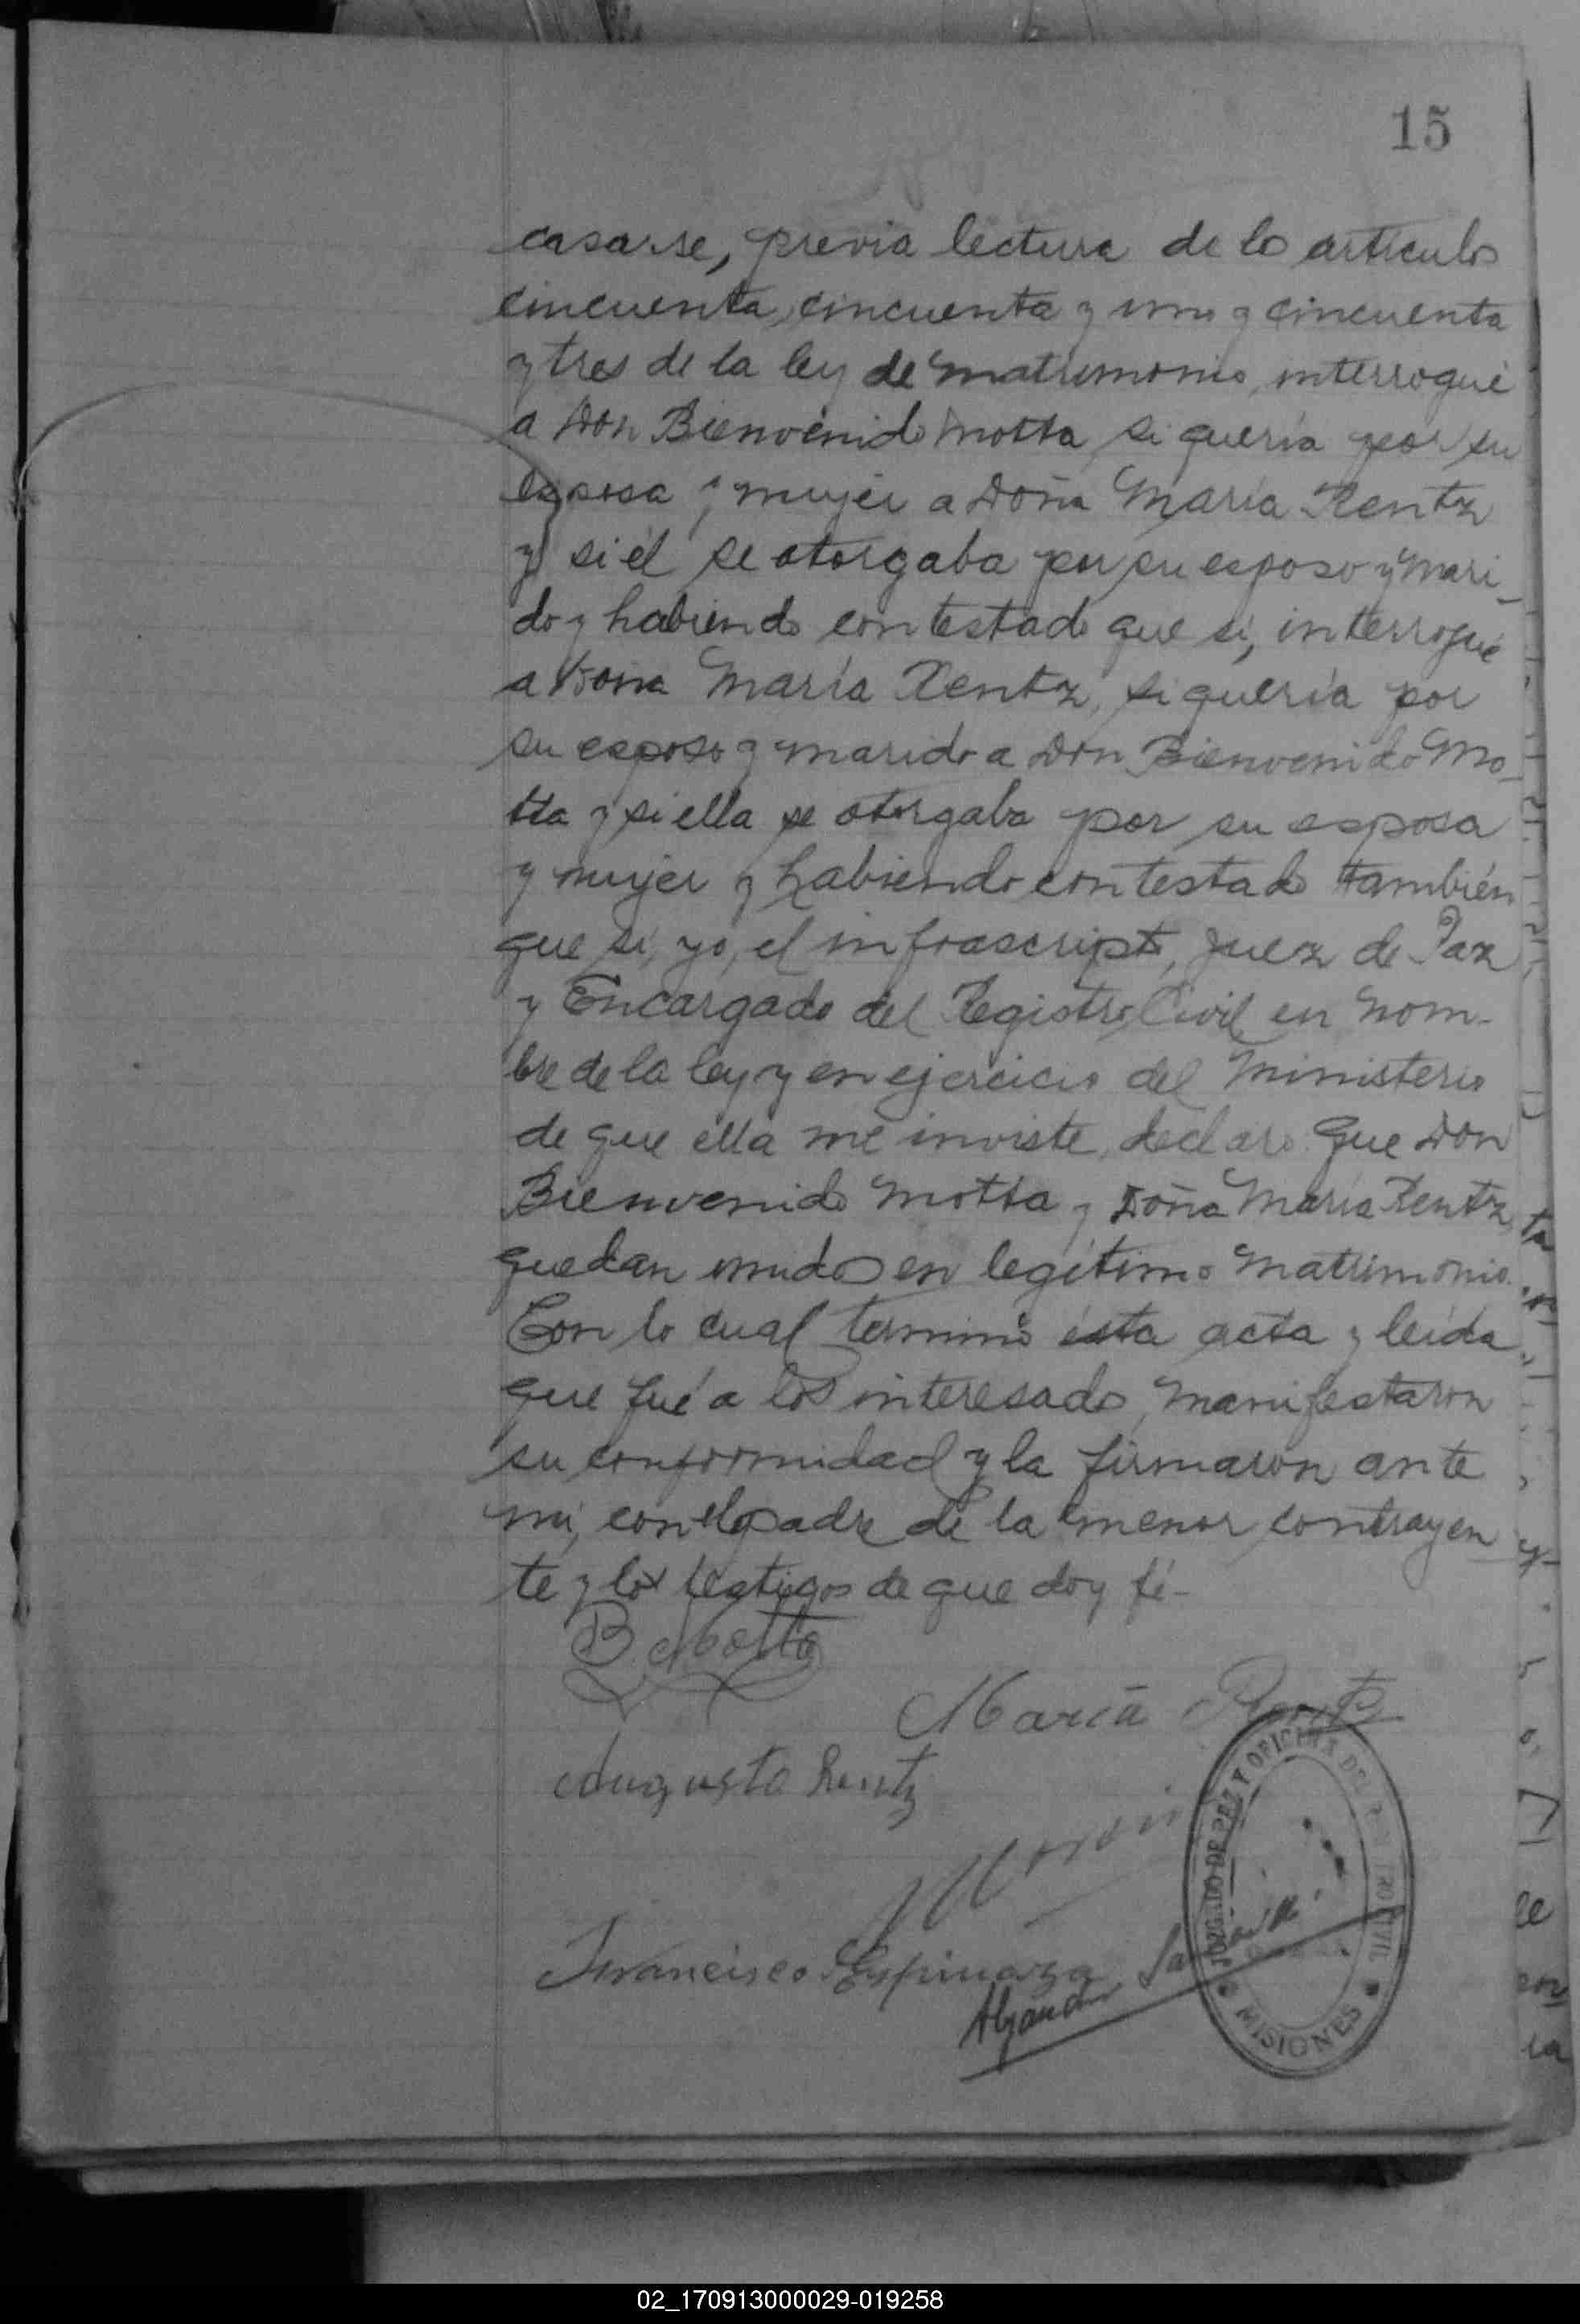 15
casarse, previa lectura de los artículos
cincuenta, cincuenta y uno y cincuenta
y tres de la ley de matrimonio, interrogué
a Don Bienvenido Motta si quería por su
esposa y mujer a Doña María Rentz
y si él se otorgaba por su esposo y mari-
do y habiendo contestado que sí, interrogué
a Doña María Rentz, si quería por
su esposo y marido a Don Bienvenido Mo-
tta y si ella se otorgaba por su esposa
y mujer y habiendo contestado también
que sí, yo, el infrascripto, Juez de Paz
y Encargado del Registro Civil en nom-
bre de la ley y en ejercicio del Ministerio
de que ella me inviste, declaro que Don
Bienvenido Motta y Doña María Rentz,
quedan unidos en legítimo matrimonio.
Con lo cual terminó ésta acta y leída
que fué a los interesados, manifestaron
su conformidad y la firmaron ante
mí, con el padre de la menor contrayen-
te y los testigos de que doy fé-
B. Motta
María Rentz
Augusto Rentz
Francisco Espinoza
Alejandro
JUZGADO DE PAZ Y OFICINA DEL REGISTRO CIVIL
MISIONES
02_170913000029-019258